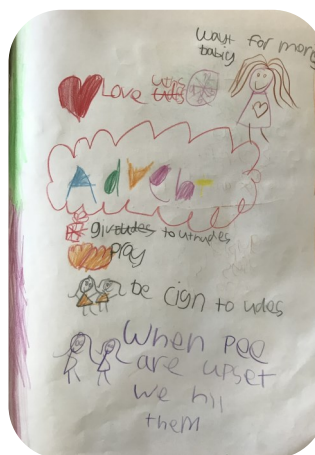 wayt for mory
babiy
Love uths
Adveb-
giv udes to uthudes
pray
be cign to udes
When pee
are upset
we hil
them